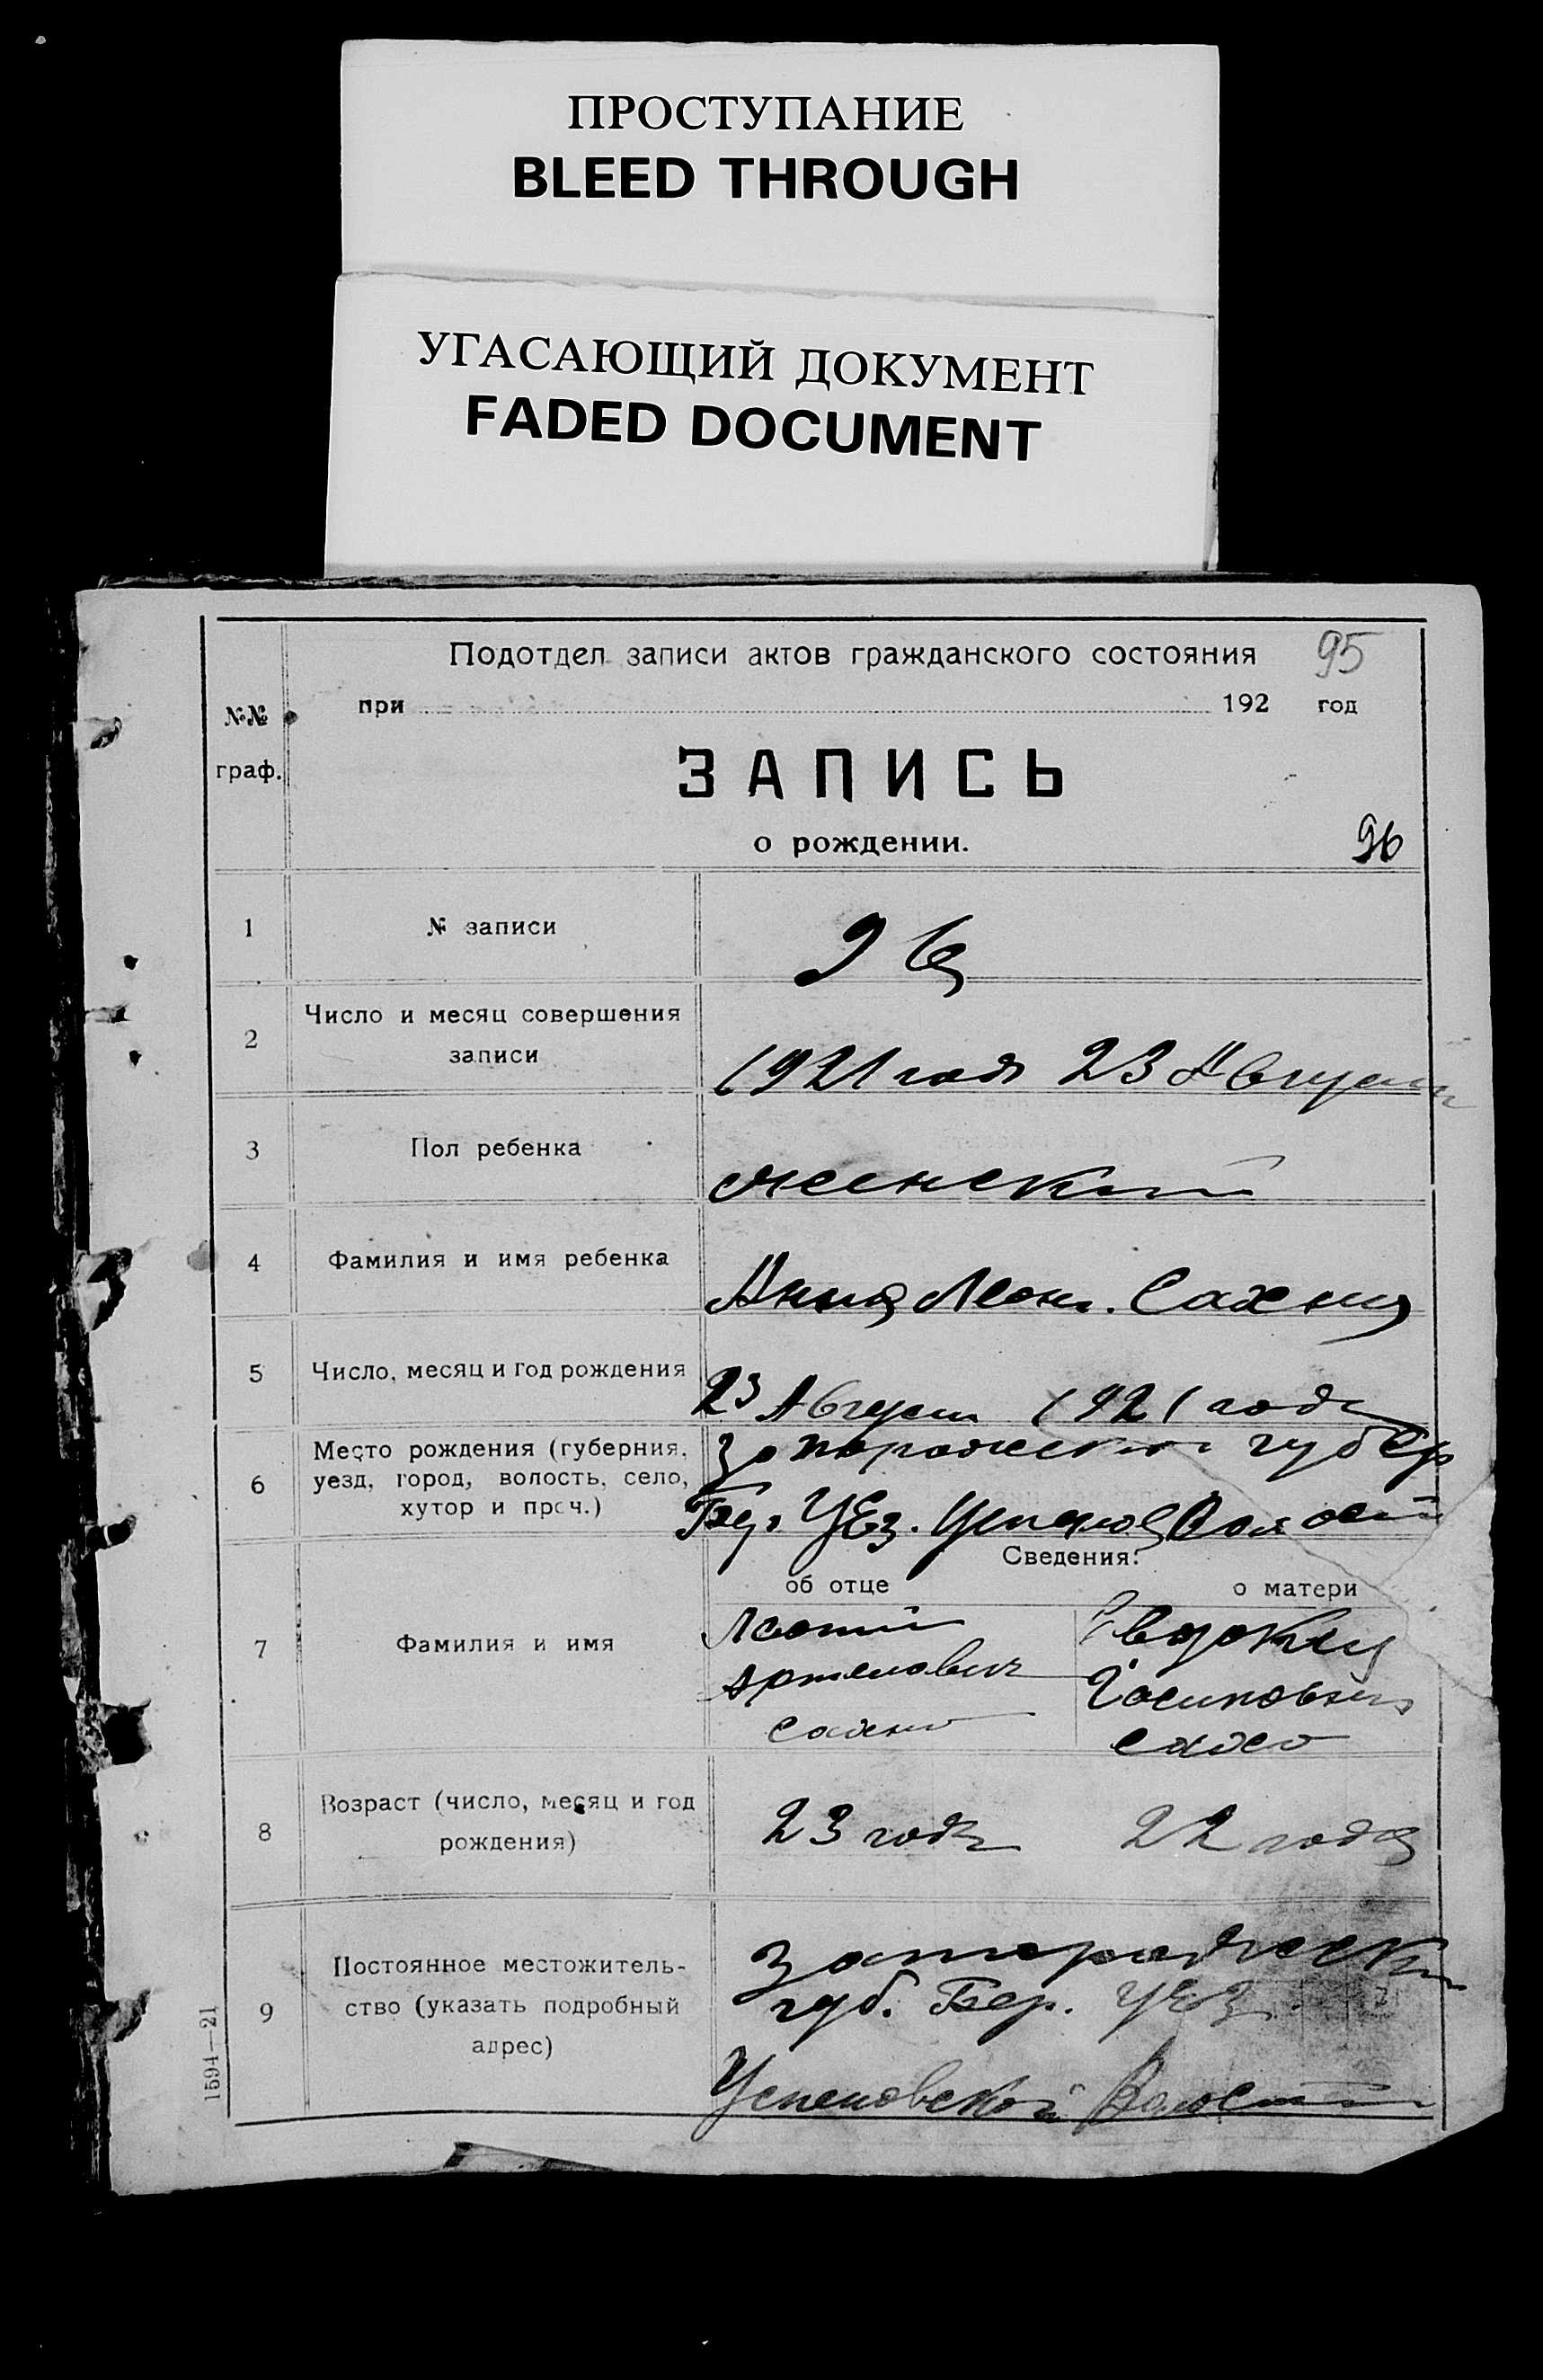 ПРОСТУПАНИЕ
BLEED THROUGH
УГАСАЮЩИЙ ДОКУМЕНТ
FADED DOCUMENT
Подотдел записи актов гражданского состояния
95
№№
граф.
при 192 год
ЗАПИСЬ
о рождении.
96
1 № записи
96
2 Число и месяц совершения
записи
1921 года 23 Августа
3 Пол ребенка
женский
4 Фамилия и имя ребенка
Анна Сахно
5 Число, месяц и год рождения
23 Августа 1921 года
6 Место рождения (губерния,
уезд, город, волость, село,
хутор и проч.)
Запорожской губер
Бер. Уез. Успенов Волости
Сведения:
об отце
о матери
7 Фамилия и имя
Артемович
Сахно
Евдокия
Сахно
8 Возраст (число, месяц и год
рождения)
23 года 22 года
9 Постоянное местожитель-
ство (указать подробный
адрес)
Запорожской
губ. Бер. Уез.
Успеновской Волости
1594—21